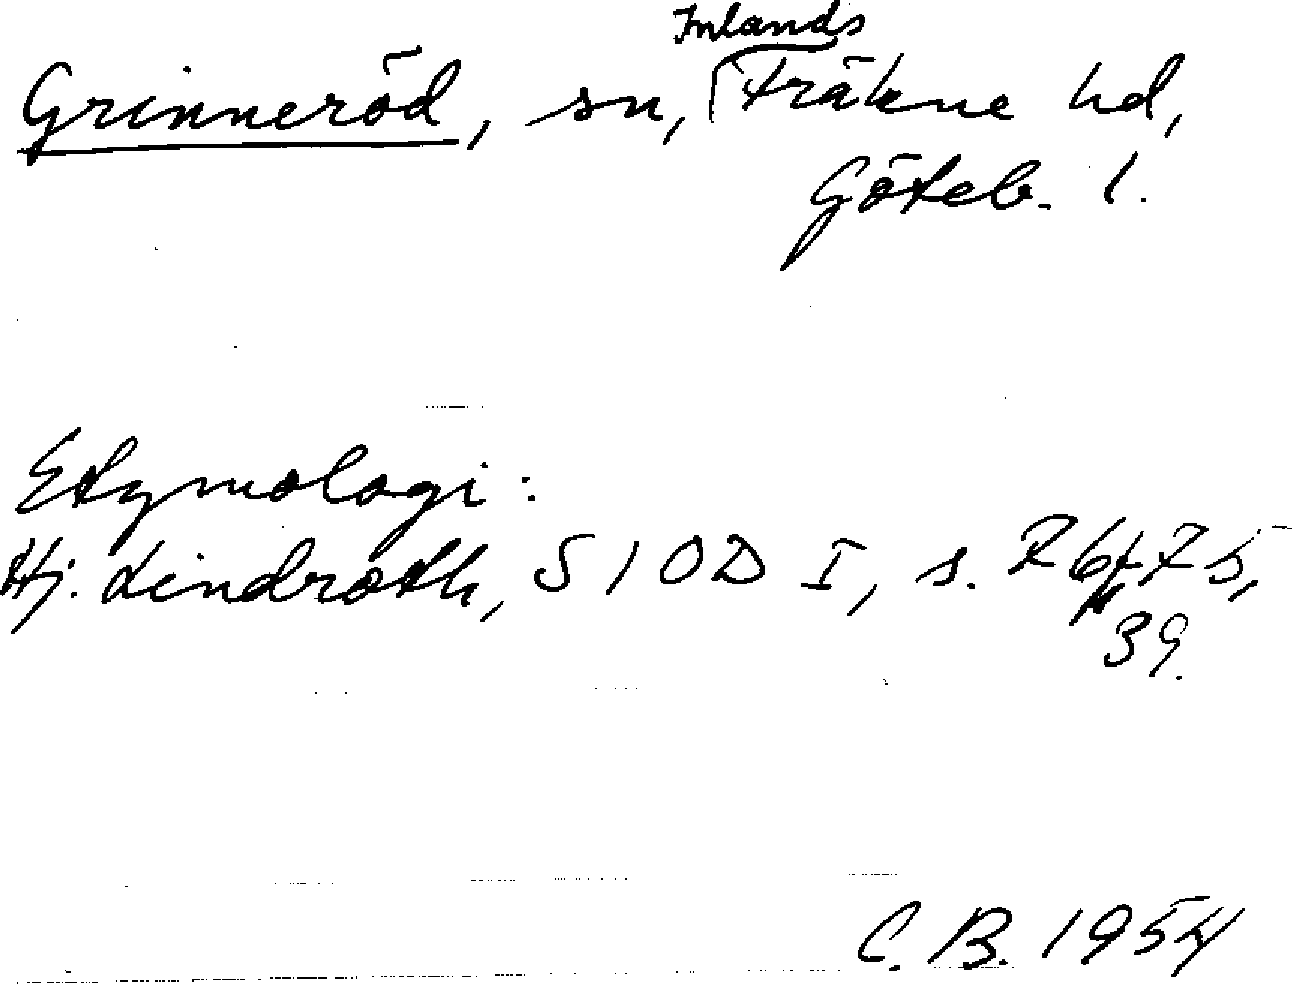 Inlands
Grinneröd, sn, Fräkne hd,
Göteb. l.
Etymologi:
Hj. Lindroth, SIOD I, s.
39.
C. B. 1954